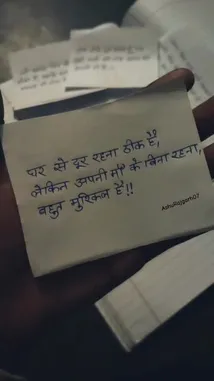 घर से दूर रहना ठीक है,
लेकिन अपनी माँ के बिना रहना,
बहुत मुश्किल है!!
AshuRajgom07